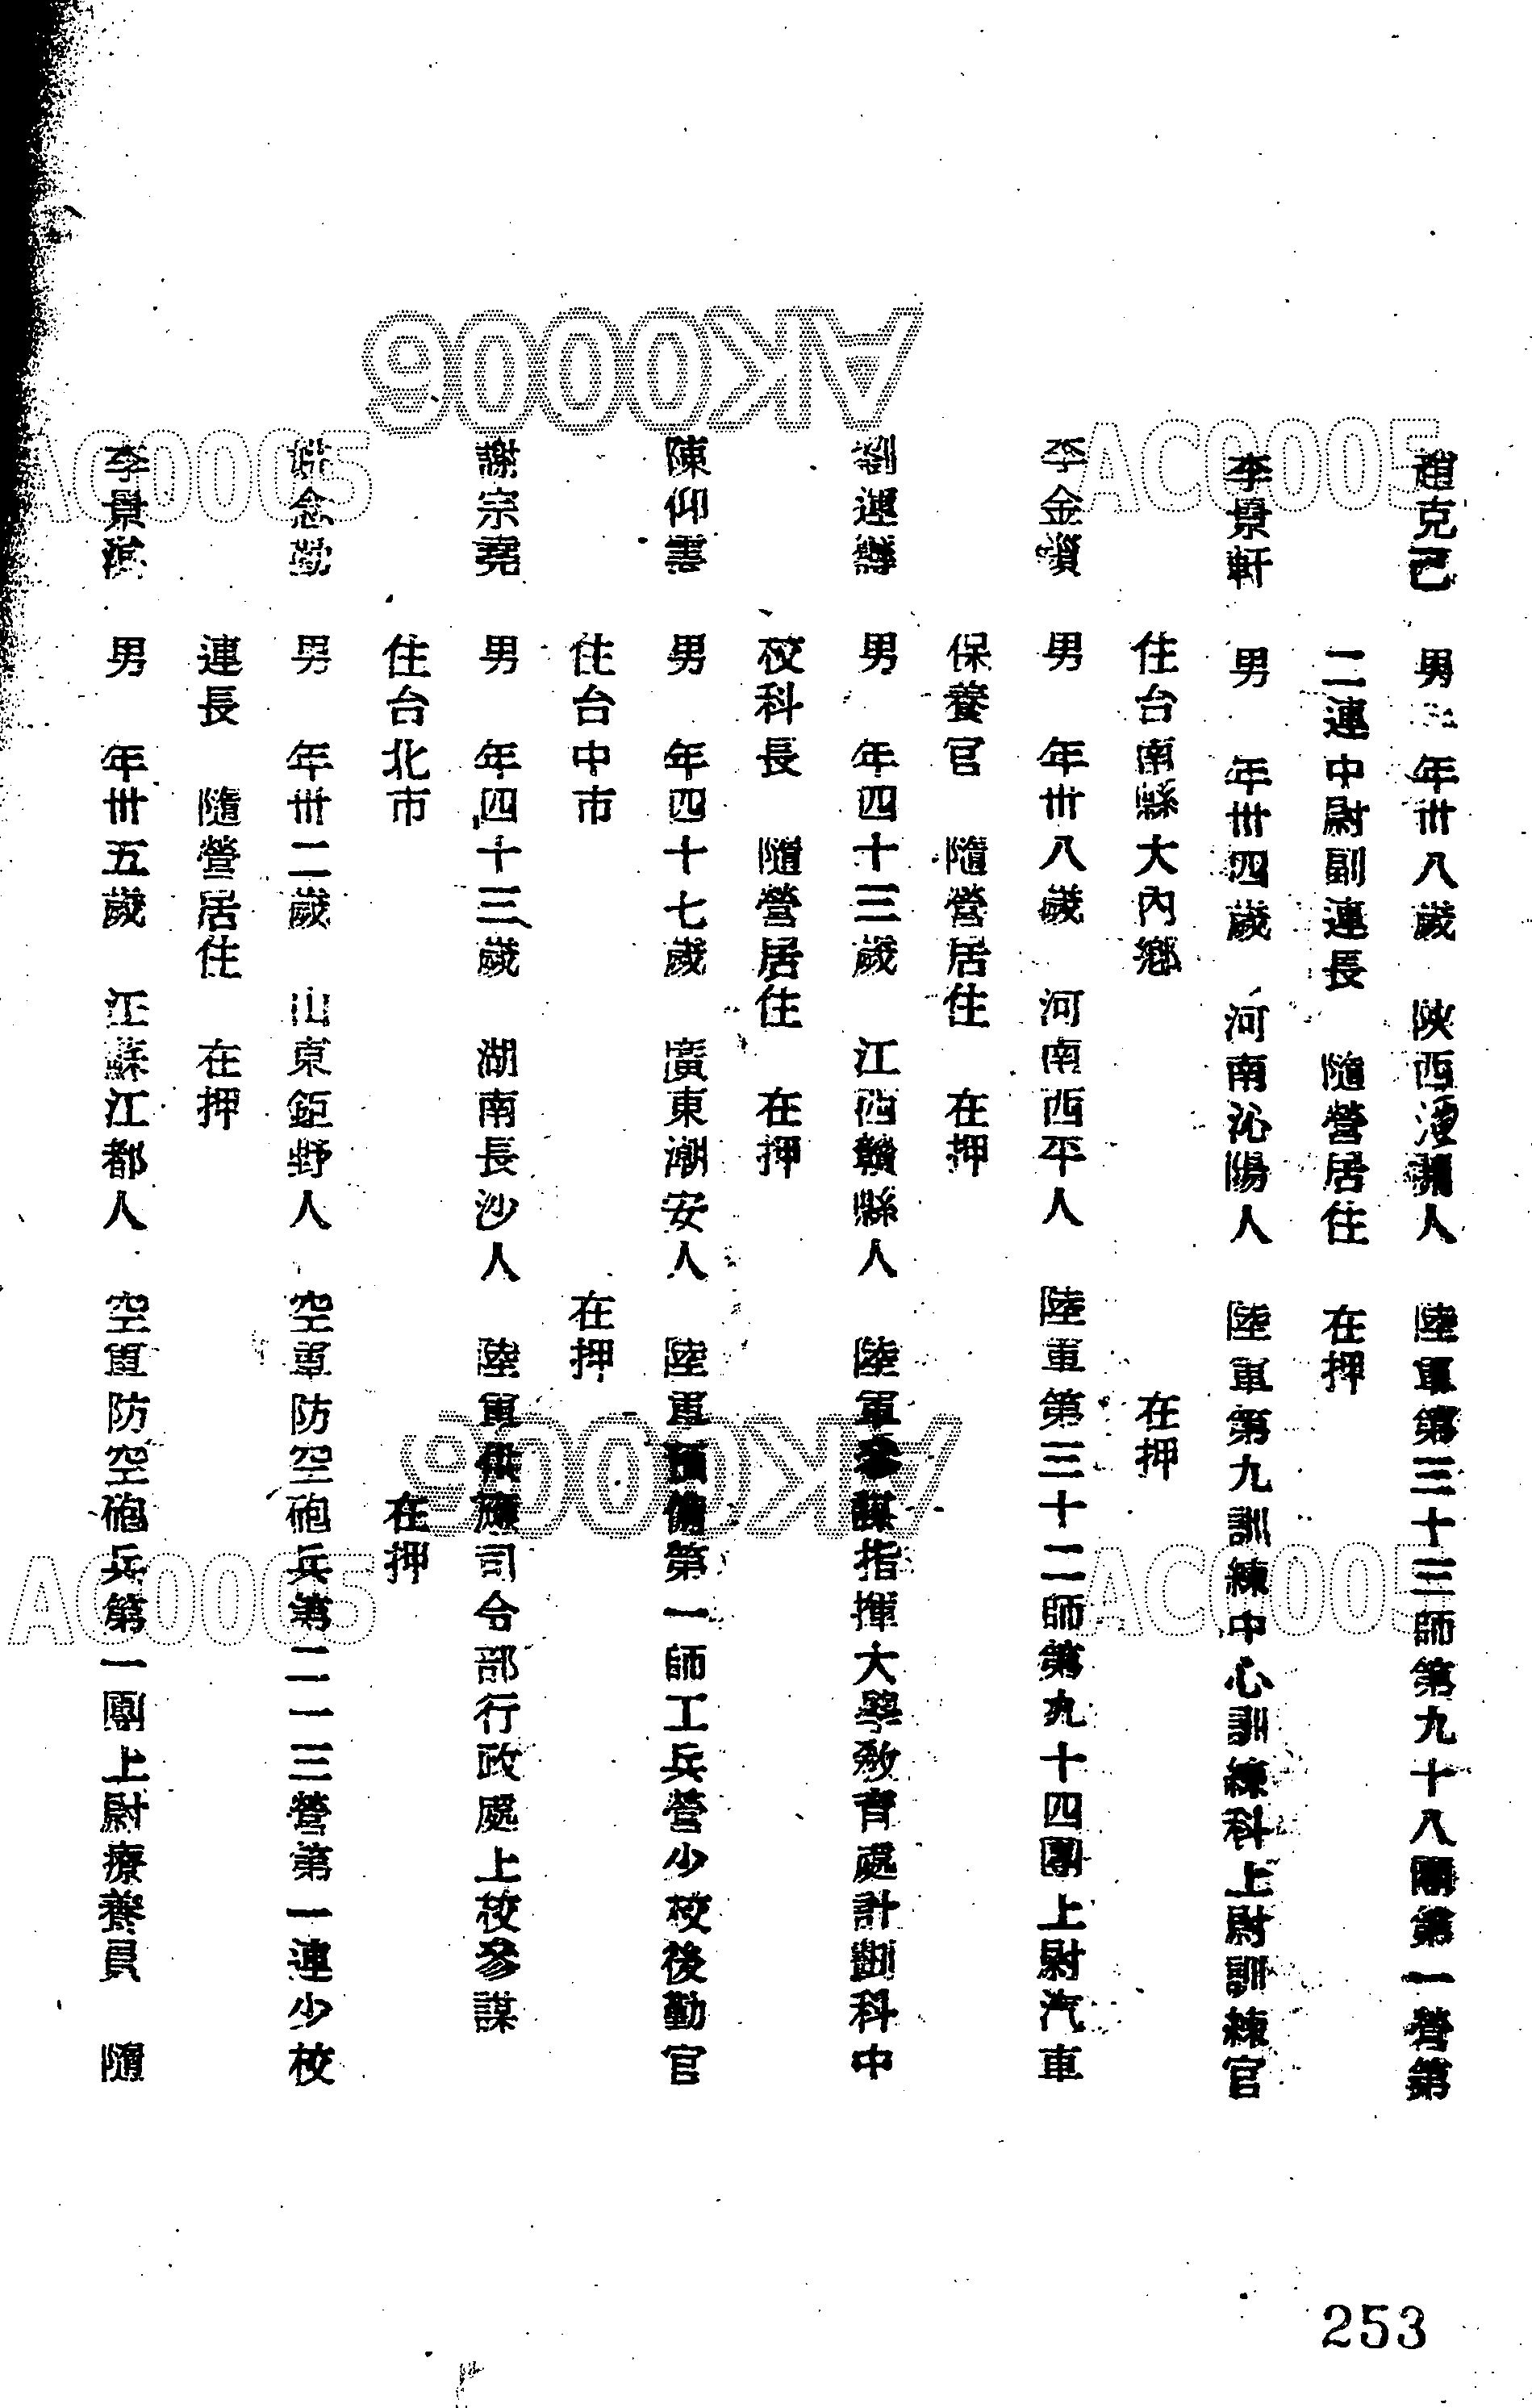 趙克己 男 年卅八歲 陝西 人 陸軍第三十三師第九十八團第一營第
二連中尉副連長 隨營居住 在押
李景軒 男 年卅四歲 河南沁陽人 陸軍第九訓練中心訓練科上尉訓練官
住台南縣大內鄉 在押
李金鎖 男 年卅八歲 河南西平人 陸軍第三十二師第九十四團上尉汽車
保養官 隨營居住 在押
劉運 男 年四十三歲 江西贛縣人 陸軍參謀指揮大學教育處計劃科中
校科長 隨營居住 在押
陳仰雲 男 年四十七歲 廣東潮安人 陸軍預備第一師工兵營少校後勤官
住台中市 在押
謝宗堯 男 年四十三歲 湖南長沙人 陸軍供應司令部行政處上校參謀
住台北市 在押
念勤 男 年卅二歲 山東鉅野人 空軍防空砲兵第二一三營第一連少校
連長 隨營居住 在押
李景 男 年卅五歲 江蘇江都人 空軍防空砲兵第一團上尉療養員 隨
253
AK0006
AC0005
AC0005
AK0006
AC0005
AC0005